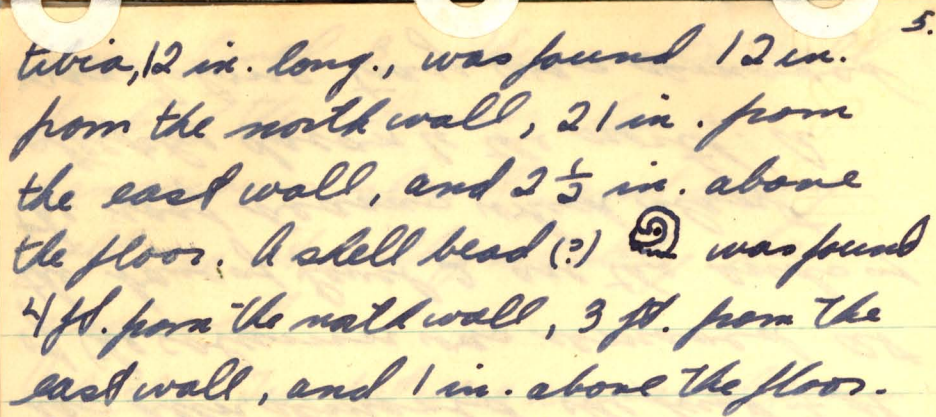 5.
tibia, 12 in. long., was found 12 in.
from the north wall, 21 in. from
the east wall, and 2 1/2 in. above
the floor. A shell bead (?) was found
4 ft. from the north wall, 3 ft. from the
east wall, and 1 in. above the floor.